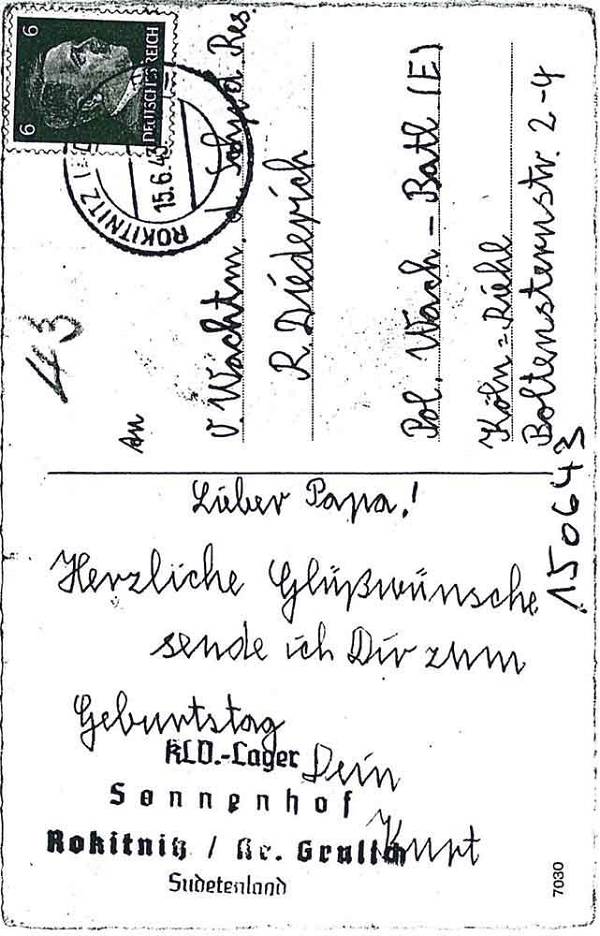 6 6
DEUTSCHES REICH
ROKITNITZ
15.6.43
43
An
V. Wachtm. d. Schp d Res.
R. Diederich
Pol. Wach - Batl (E)
Köln=Riehl
Boltensternstr. 2-4
150643
Lieber Papa!
Herzliche Glüßwünsche
sende ich Dir zum
Geburtstag
KLV.-Lager
Dein
Sonnenhof
Kurt
Rokitnitz / Kr. Grulich
Sudetenland
7030